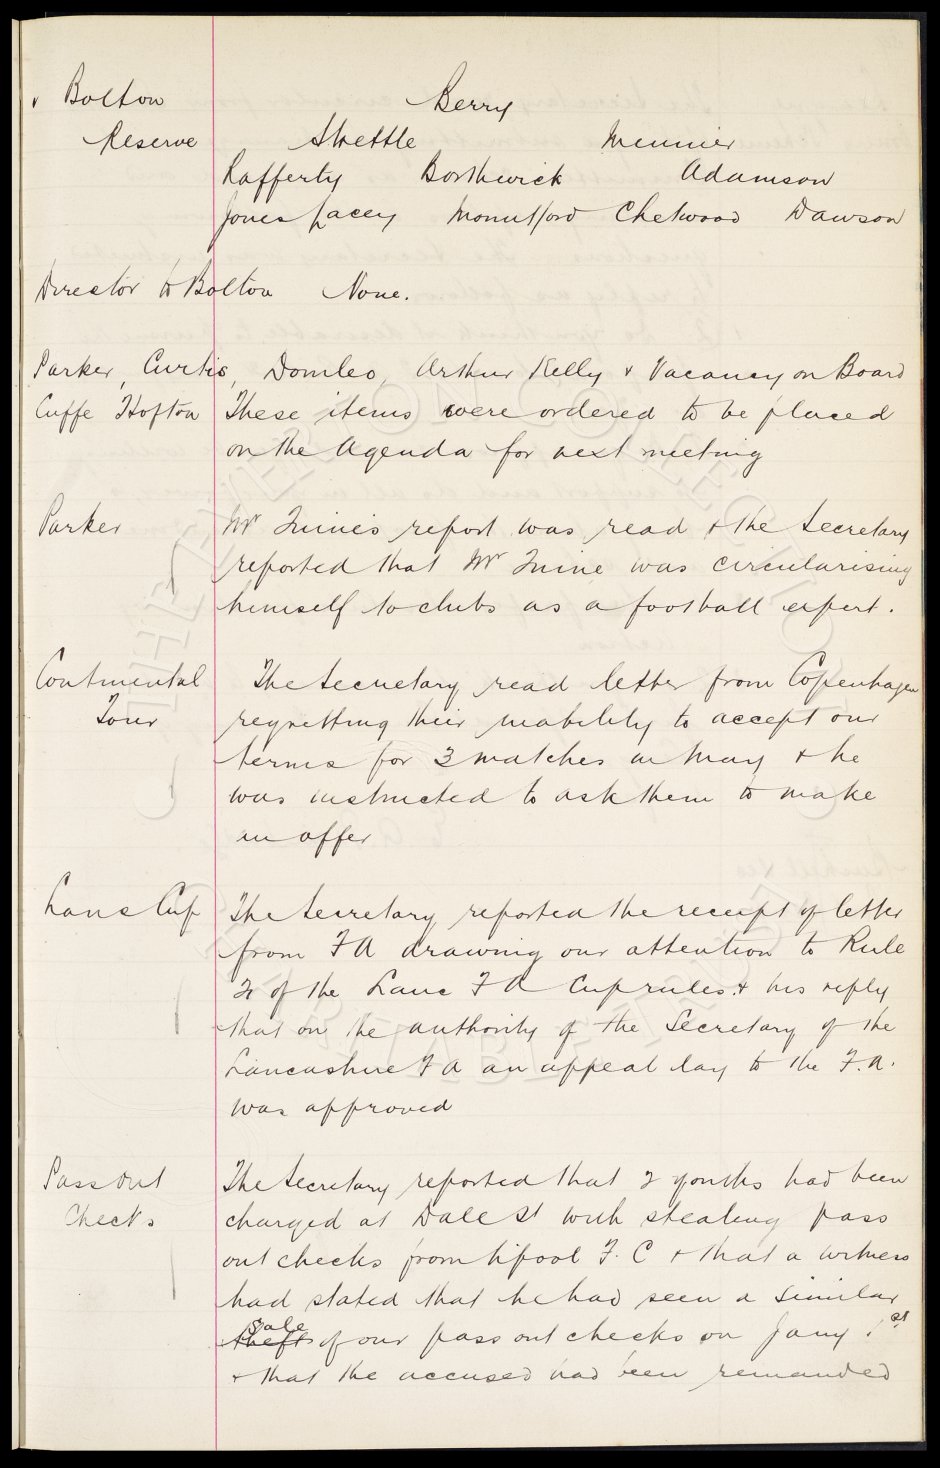 v Bolton Berry
Reserve Strettle Meunier
Rafferty Borthwick Adamson
Jones Lacey Mountford Chetwood Dawson
Director to Bolton None.
Parker, Curtis, Domleo, Arthur Kelly & Vacancy on Board
Cuffe Hofton These items were ordered to be placed
on the Agenda for next meeting
Parker Mr report was read & the Secretary
reported that Mr was circularising
himself to clubs as a football expert.
Continental The Secretary read letter from Copenhagen
Tour regretting their inability to accept our
terms for 3 matches in May & he
was instructed to ask them to make
an offer
Lancs Cup The Secretary reported the receipt of letter
from F A drawing our attention to Rule
of the Lanc F A Cup rules & his reply
that on the authority of the Secretary of the
Lancashire F A an appeal lay to the F.A.
was approved
Pass out The Secretary reported that 2 youths had been
Checks charged at Dale St with stealing pass
out checks from L'pool F. C & that a witness
had stated that he had seen a similar
sale
theft of our pass out checks on Jany 1st
& that the accused had been remanded
THE EVERTON COLLECTION
CHARITABLE TRUST